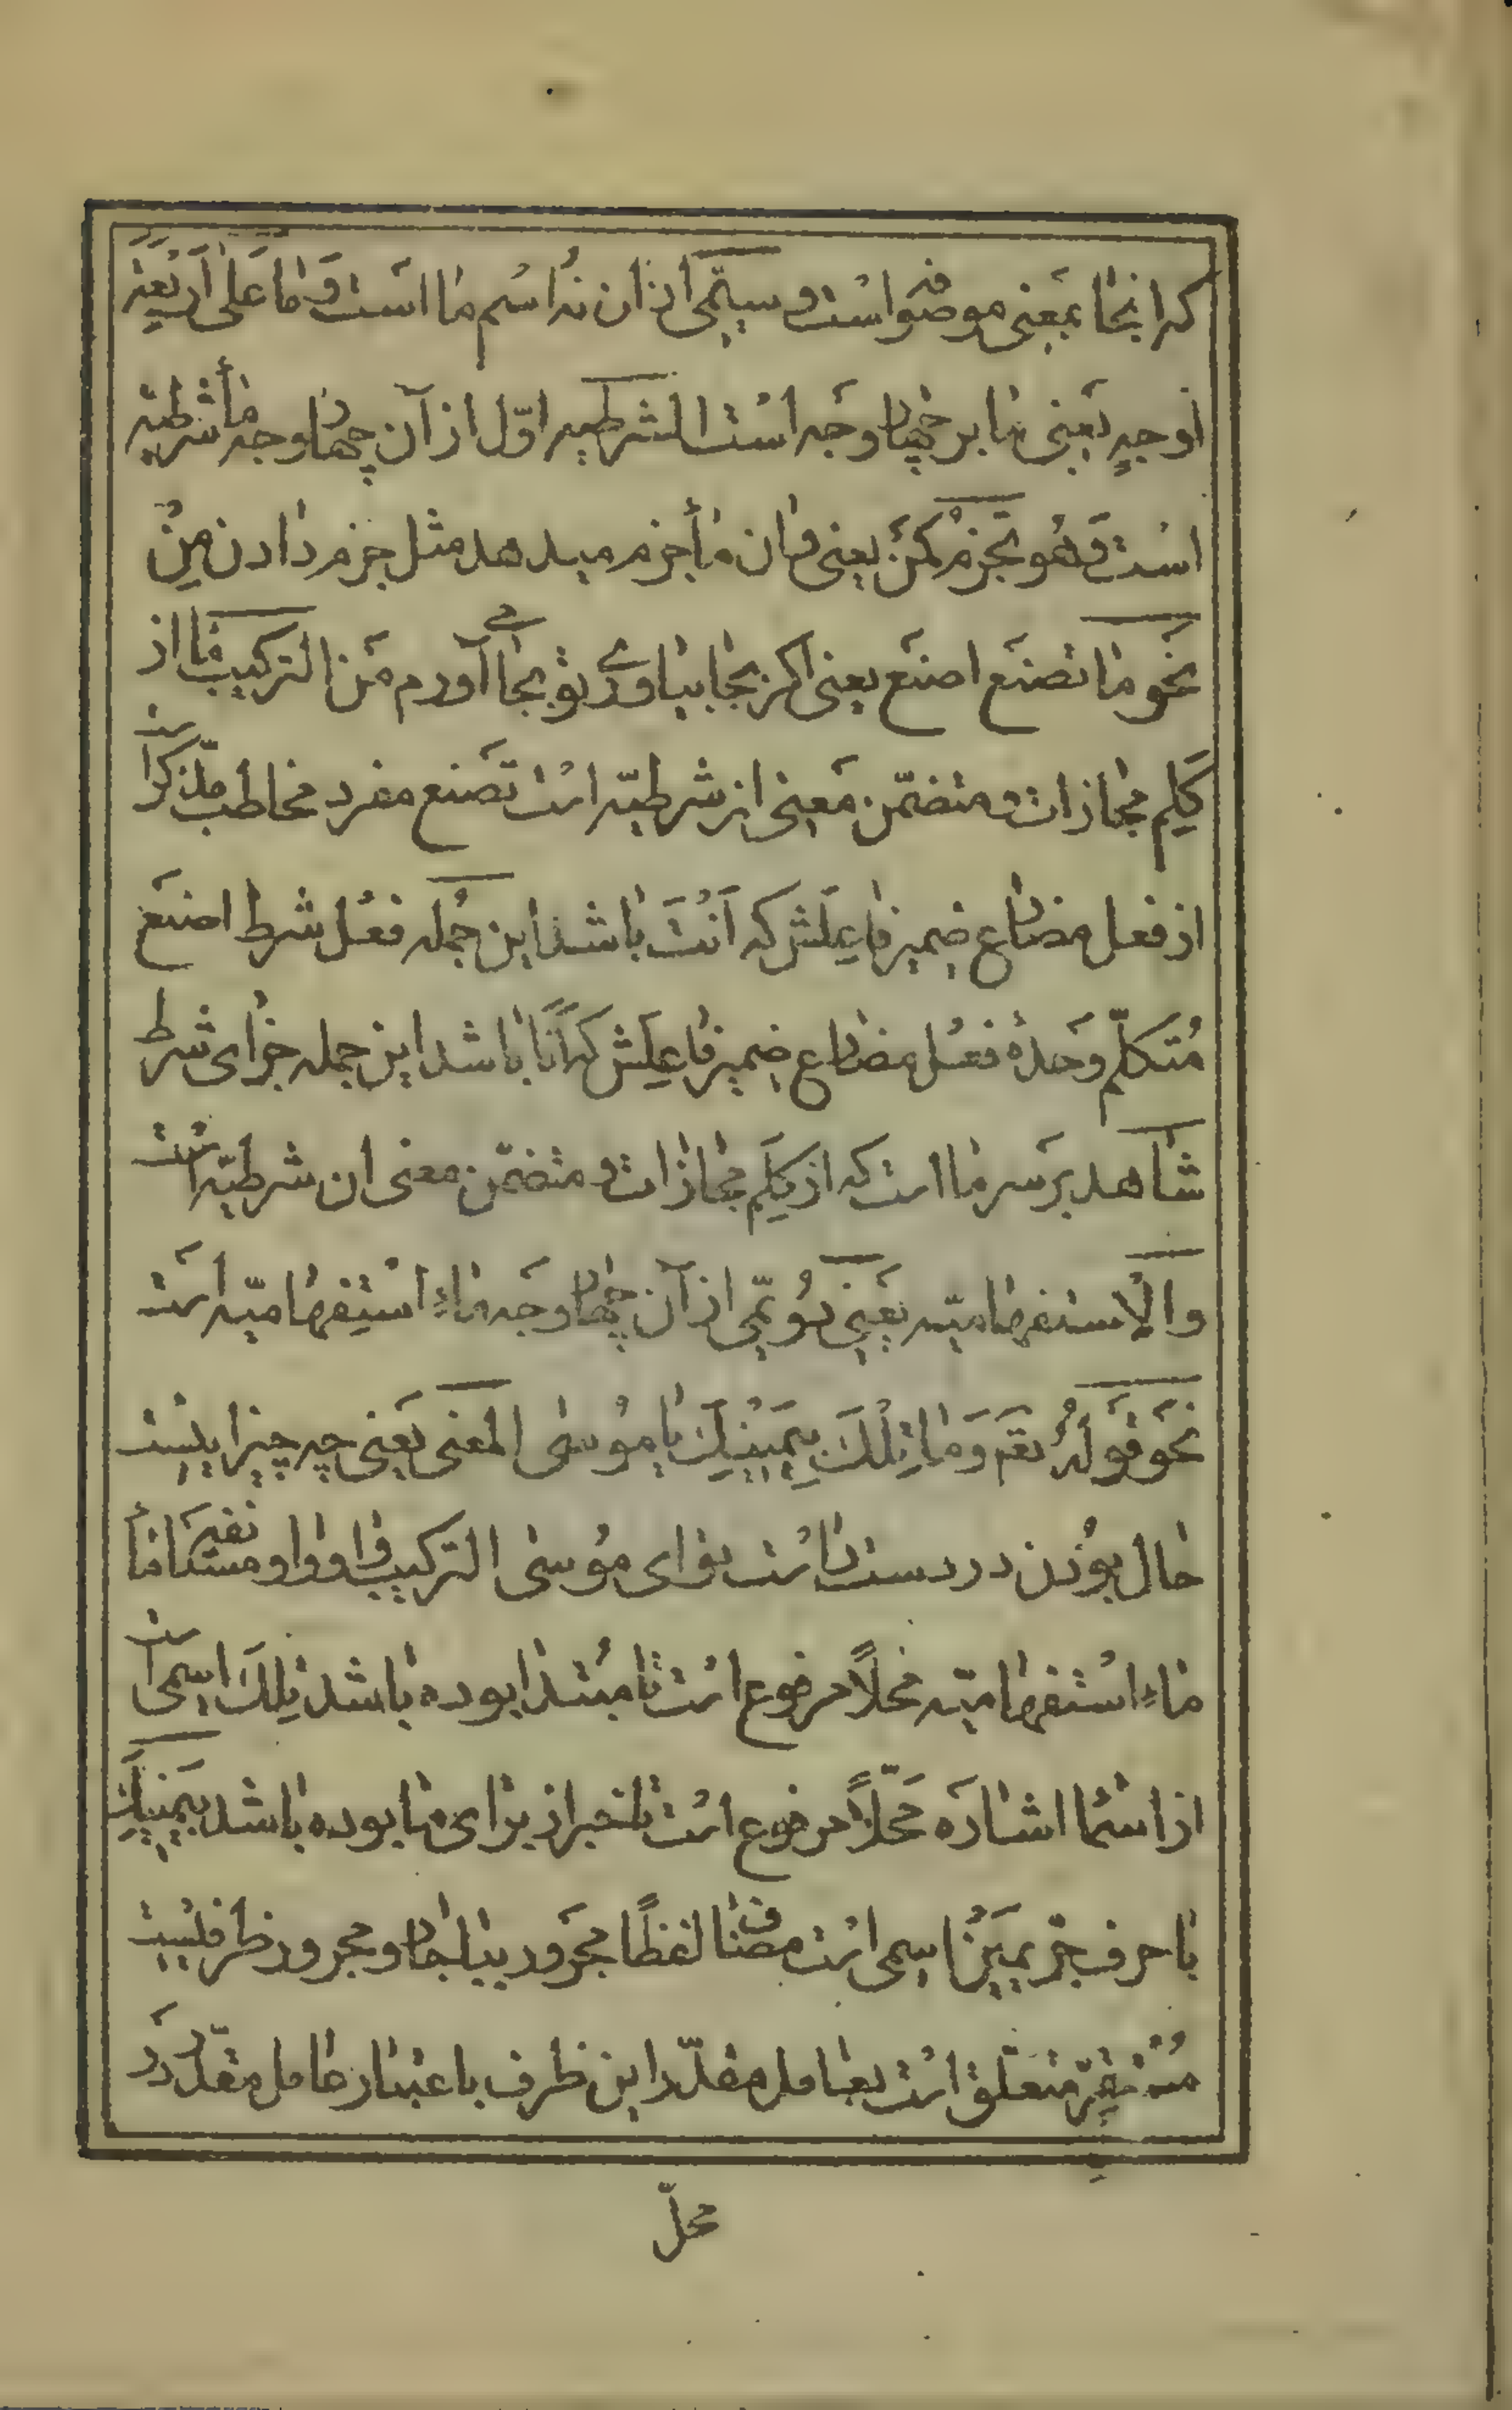 که اینجا بمعنی موصوفه است و سیّمی از آن نُه اسم ما است وَ مٰا عَلیٰ اَرْبَعَةِ
اَوجهٍ یَعنی ما بر چهار وَجه است الشرطیه اوّل از آن چهار وجه ماء شرطیّه
است فَهُو تجزمُ کمَنْ یعنی و ان ماء جزم میدهد مثل جزم دادن مِنْ
نَحو ما تصنَع اصنَع یعنی اگر بجا بیاوری تو بجا آورم مَن الترکیب ما از
کَلِمِ مجازات و متضمّن مَعنی انْ شرطیّه است تصنَع مفرد مخاطب مذکر است
از فعل مضارع ضمیر فاعِلَش که اَنْتَ باشد این جُمله فعُل شرط اصنَع
مُتَکلّم وَحدهُ فعُل مضارع ضمیر فاعِلَش که اَنَا باشد این جمله جزای شرط
شاهد بَر سر ما است که از کَلِمِ مجازات و متضمّن معنی ان شرطیّه است
والْاستفهامیّه یعَنی دُویّمی از آن چهار وجَه ماءِ اسْتِفهامیّه است
نَحَو قَولهُ تعَم وَمٰا تِلْكَ بِیَمَیْنِكَ یٰا مُوسٰی المعنی یَعنی چه چیز ایست
حال بوُدن در دست راست تو ای مُوسی الترکیب واو واو مستدا نفیَه ما
ماءِ استفهامیّه محَلاً مرفوع است تا مبُتدا بوده باشد تِلكَ اسمی است
از اسْما اشارَه مَحَلّاً مرفوع است تا خبر از برای ما بوده باشد بِیَمَینِكَ
با حرف جرّ یمَیَنْ اسمی است مضاف لفظاً مجَرور ببا جار و مجرور ظرفیست
مُسْتقِرّ متعَلّق است بعامل مقدّر این ظرف باعتبار عامل مقدّر دَر
محلّ